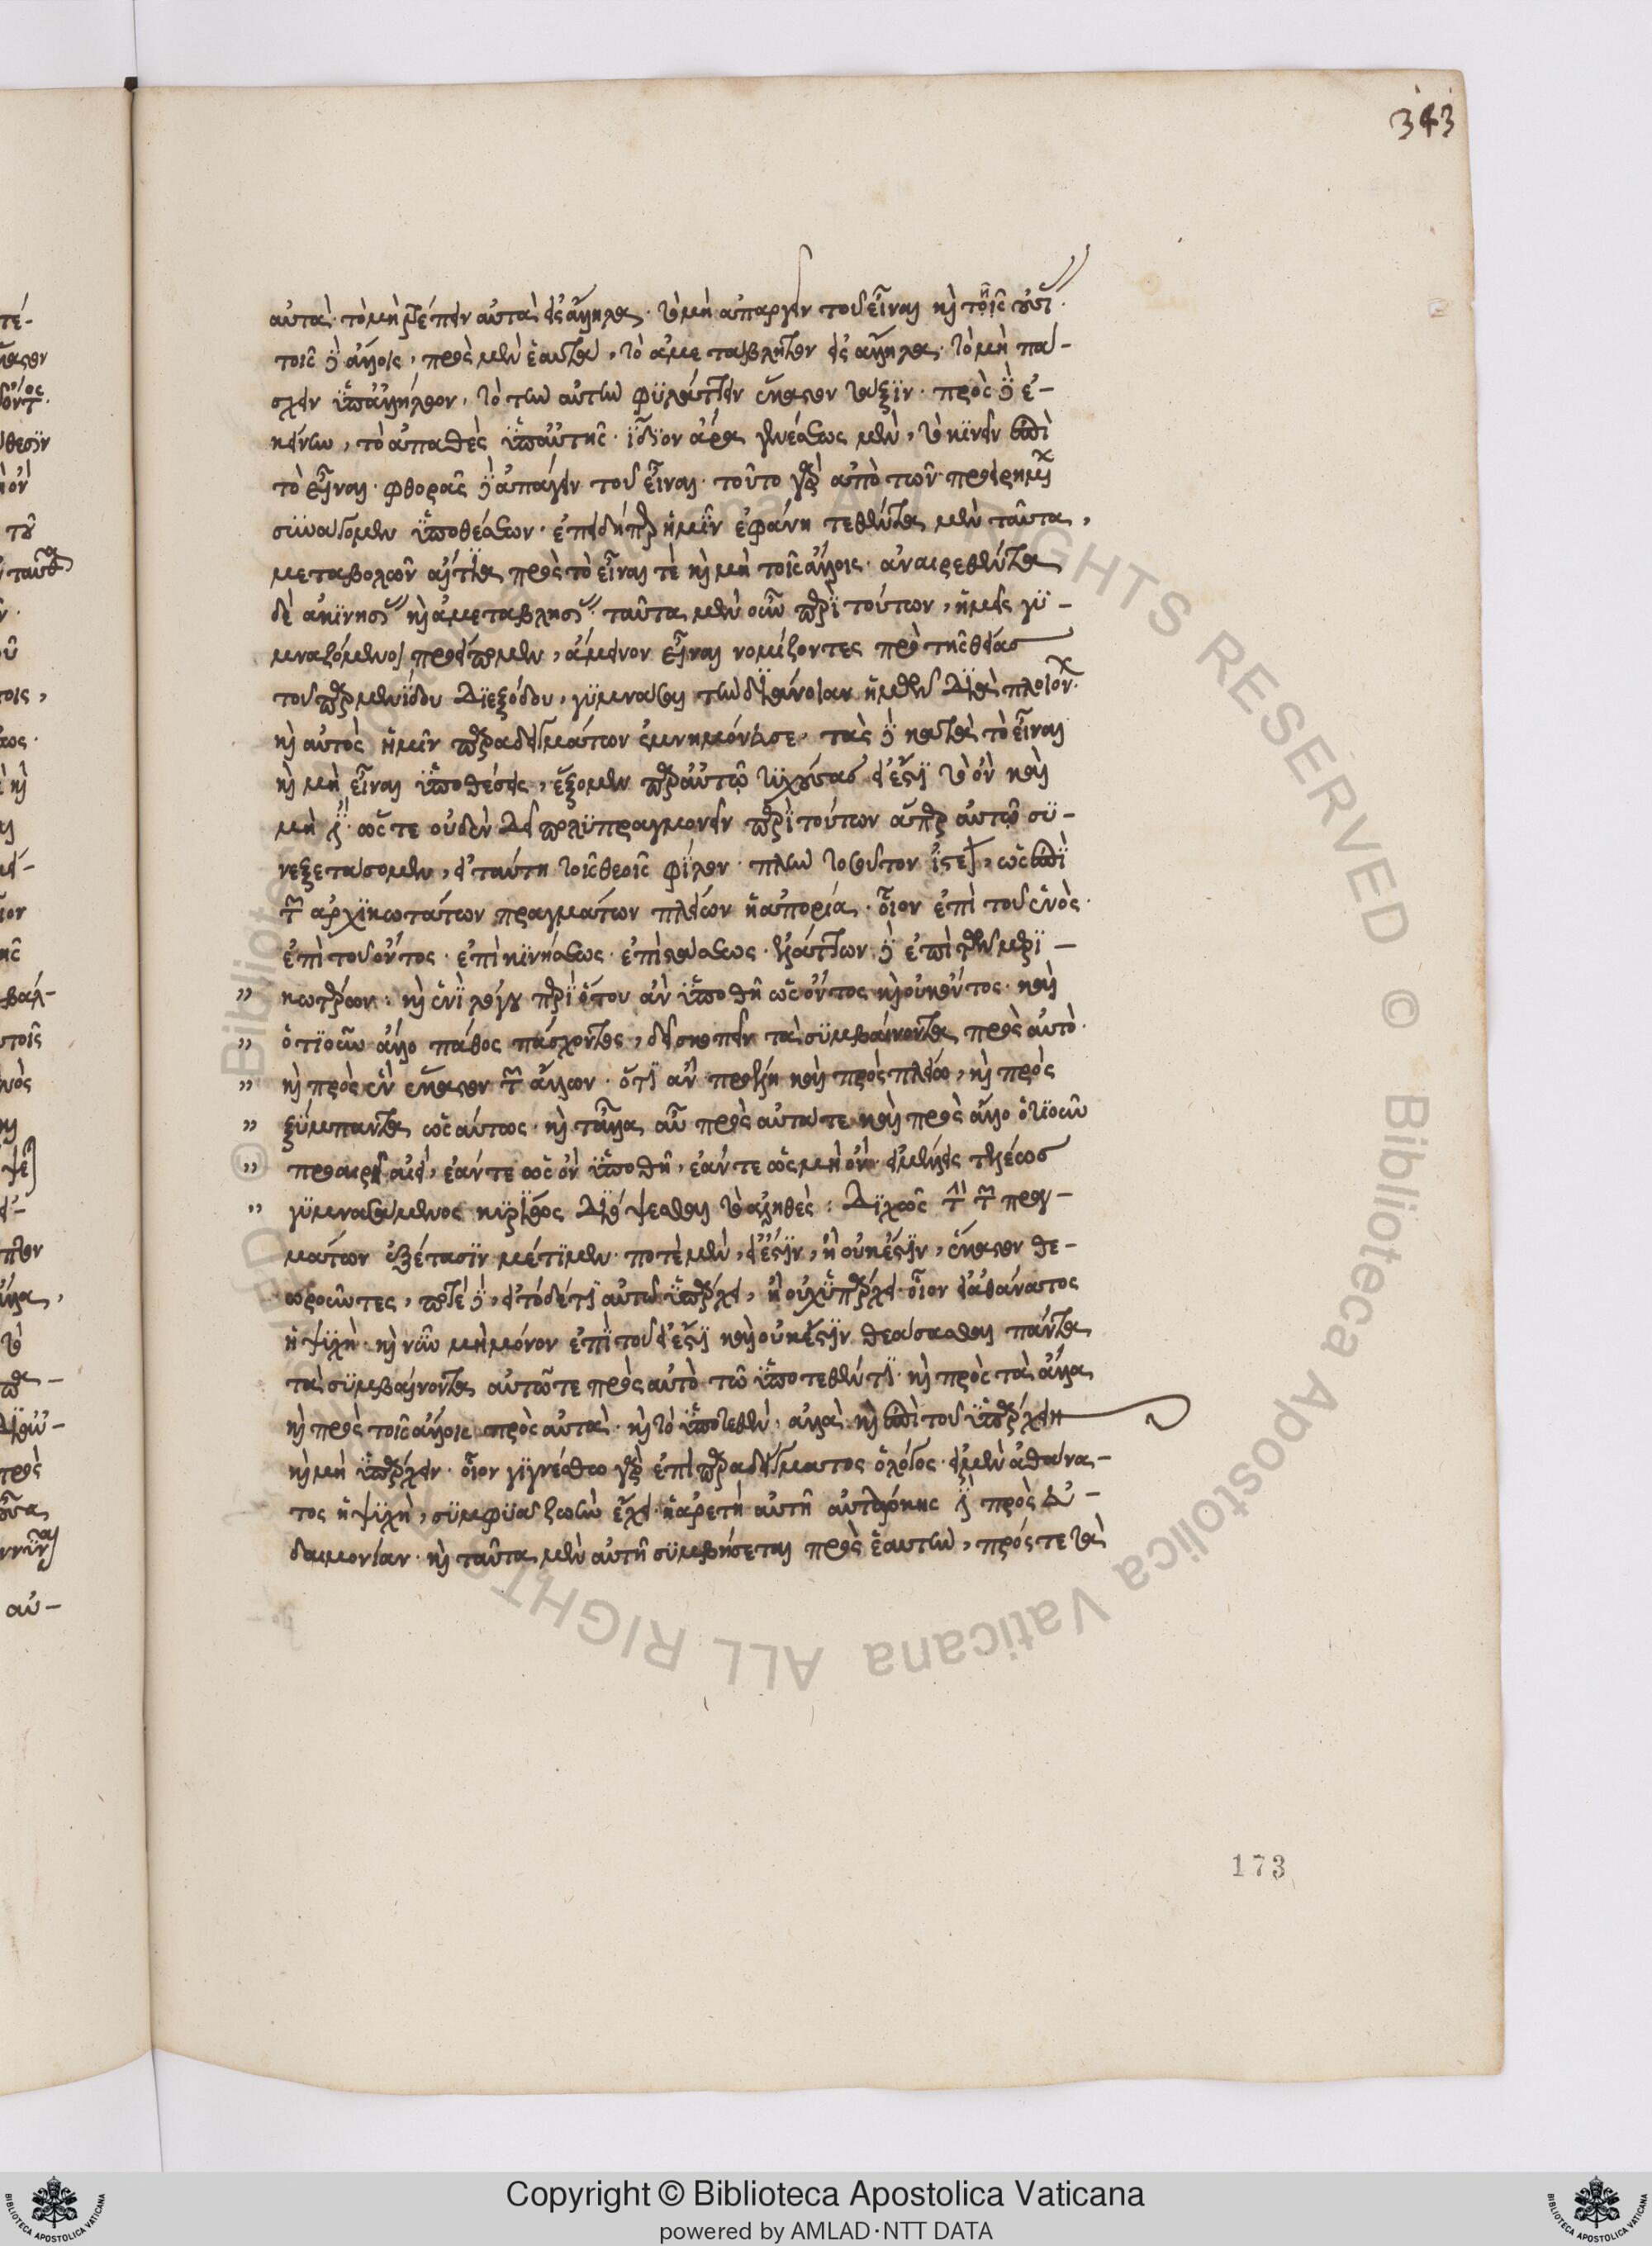 343
αὐτὰ. τὸ μὴ τρέπειν αὐτὰ εἰς ἄλληλα. τὸ μὴ ἀπάργειν τοῦ εἶναι καὶ τῆς
τοῖς δὲ ἄλλοις, πρὸς μὲν ἑαυτὰ, τὸ ἀμετάβλητον εἰς ἄλληλα. τὸ μὴ πά-
σχειν ὑπ' ἀλλήλων. τὸ τὴν αὐτὴν φυλάττειν ἕκαστον τάξιν. πρὸς δὲ ἐ-
κείνην, τὸ ἀπαθὲς ὑπ' αὐτῆς. ἴδιον ἄρα γενέσεως μὲν, τὸ κινεῖν ἐπὶ
τὸ εἶναι. φθορᾶς δὲ ἀπάγειν τοῦ εἶναι. τοῦτο γὰρ ἀπὸ τῶν προειρημένων
συνάγομεν ὑποθέσεων. ἐπειδήπερ ἡμῖν ἐφάνη τεθέντα μὲν ταῦτα,
μεταβολῶν αἴτια πρὸς τὸ εἶναί τε καὶ μὴ τοῖς ἄλλοις. ἀναιρεθέντα
δὲ ἀκινησίας καὶ ἀμεταβλησίας. ταῦτα μὲν οὖν περὶ τούτων, ἡμεῖς γυ-
μναζόμενοι προείπομεν, ἄμεινον εἶναι νομίζοντες πρὸ τῆς θέας
τοῦ παρμενίδου διεξόδου, γυμνάσαι τὴν διάνοιαν ἡμῶν διὰ πλειόνων.
καὶ αὐτὸς ἡμῖν παραδειγμάτων ἐμνημόνευσε. τὰς δὲ κατὰ τὸ εἶναι
καὶ μὴ εἶναι ὑποθέσεις, ἕξομεν παρ' αὐτῷ τυχούσας εἰ ἔστι τὸ ὂν καὶ
μὴ ἔστι. ὥστε οὐδὲν δεῖ πολυπραγμονεῖν περὶ τούτων ἅπερ αὐτῷ συ-
νεξετάσομεν, εἰ ταύτη τοῖς θεοῖς φίλον. πλὴν τοσοῦτον ἰστέον, ὡς ἐπὶ
τῶν ἀρχικωτάτων πραγμάτων πλείων ἡ ἀπορία. οἷον ἐπὶ τοῦ ἑνὸς.
ἐπὶ τοῦ ὄντος. ἐπὶ κινήσεως. ἐπὶ στάσεως. ἐλάττων δὲ ἐπὶ τῶν μερι-
κωτέρων: καὶ ἑνὶ λόγῳ περὶ ὅτου ἂν ὑποθῇ ὡς ὄντος καὶ οὐκ ὄντος. καὶ
ὁτιοῦν ἄλλο πάθος πάσχοντος, δεῖ σκοπεῖν τὰ συμβαίνοντα πρὸς αὐτὸ.
καὶ πρὸς ἓν ἕκαστον τῶν ἄλλων. ὅτι ἂν προέλῃ καὶ πρὸς πλείω, καὶ πρὸς
ξύμπαντα ὡσαύτως. καὶ τἆλλα αὖ πρὸς αὐτά τε καὶ πρὸς ἄλλο ὁτιοῦν
προαιρῇ ἀεὶ, ἐάν τε ὡς ὂν ὑποθῇ, ἐάν τε ὡς μὴ ὂν. εἰ μέλλεις τελέως
γυμνασάμενος κυρίως διόψεσθαι τὸ ἀληθὲς: Διχῶς τὴν τῶν πραγ-
μάτων ἐξέτασιν μέτιμεν. ποτὲ μὲν, εἰ ἔστιν, ἢ οὐκ ἔστιν, ἕκαστον θε-
ωροῦντες, ποτὲ δὲ, εἰ τόδέ τι αὐτῷ ὑπάρχει, ἢ οὐχ ὑπάρχει. οἷον εἰ ἀθάνατος
ἡ ψυχὴ. καὶ νῦν μὴ μόνον ἐπὶ τοῦ εἰ ἔστι καὶ οὐκ ἔστιν θεάσασθαι πάντα
τὰ συμβαίνοντα αὐτῷ τε πρὸς αὐτὸ τῷ ὑποτεθέντι. καὶ πρὸς τὰ ἄλλα
καὶ πρὸς τοῖς ἄλλοις πρὸς αὐτὰ. καὶ τὸ ὑποτεθὲν. ἀλλὰ καὶ ἐπὶ τοῦ ὑπάρχειν
καὶ μὴ ὑπάρχειν. οἷον γιγνέσθω γὰρ ἐπὶ παραδείγματος ὁ λόγος. εἰ μὲν ἀθάνα-
τος ἡ ψυχὴ, συμφυᾶ ζωὴν ἔχει. ἡ ἀρετὴ αὐτῇ αὐτάρκης ἐστὶ πρὸς εὐ-
δαιμονίαν. καὶ ταῦτα μὲν αὐτῇ συμβήσεται πρὸς ἑαυτὴν, πρός τε τὰ
173
Copyright © Biblioteca Apostolica Vaticana
powered by AMLAD·NTT DATA